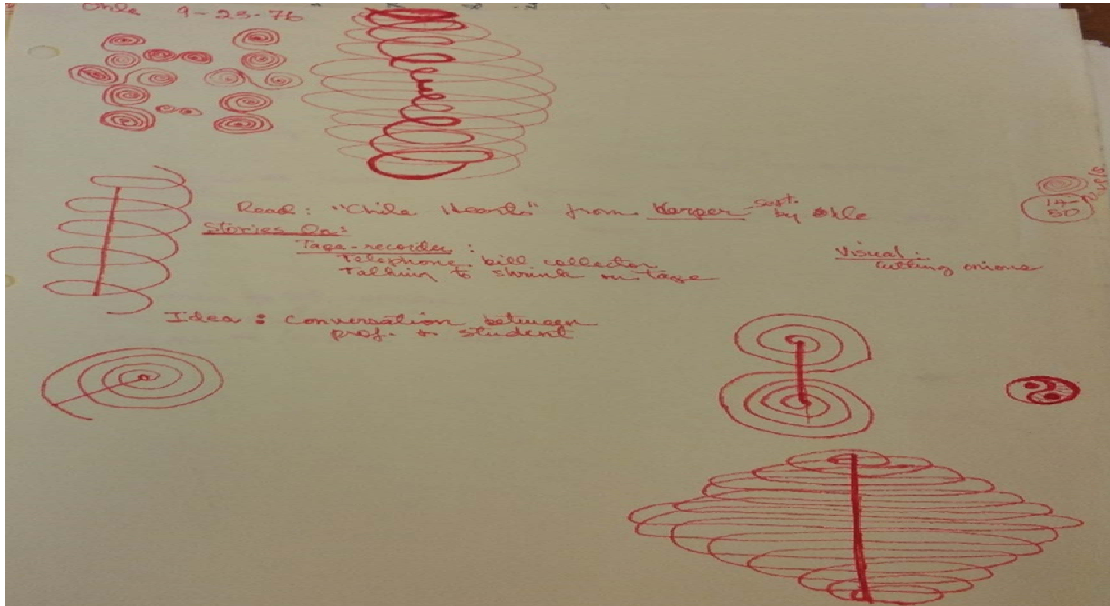 Ohle 9-23-76
Read: "Chile Hearts" from Harper Sept. by Ohle
Stories On:
Tape-recorder:
Telephone bill collector
Talking to shrink on tape
Visual:
Cutting onions
Idea: Conversation between
prof. & student
14-